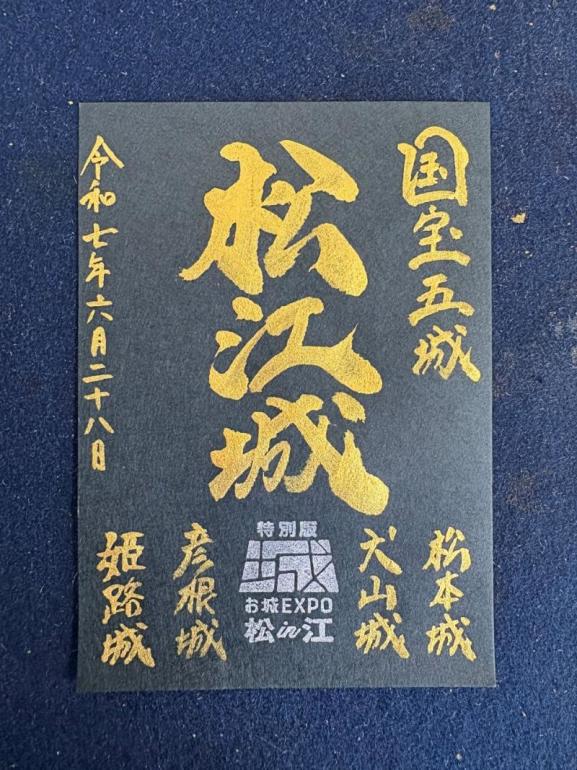 国宝五城
松江城
令和七年六月二十八日
松本城
犬山城
特別版
城
お城EXPO
松in江
彦根城
姫路城